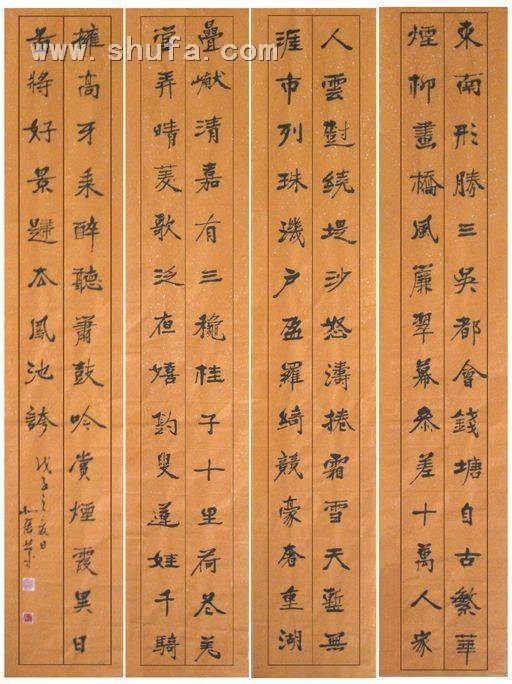 www.shufa.com
東南形勝三吳都會錢塘自古繁華
煙柳畫橋風簾翠幕參差十萬人家
人雲對繞堤沙怒濤捲霜雪天塹無
涯市列珠璣戶盈羅綺競豪奢重湖
疊巘清嘉有三穐桂子十里荷花羌
管弄晴菱歌泛夜嬉釣叟蓮娃千騎
擁高牙乘醉聽簫鼓吟賞煙霞異日
圖將好景歸去鳳池誇
戊子之夏日